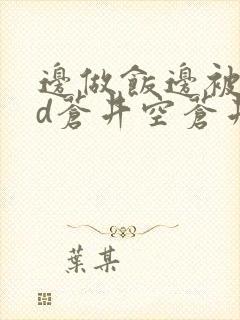 邊做飯邊被
d蒼井空蒼井
葉某